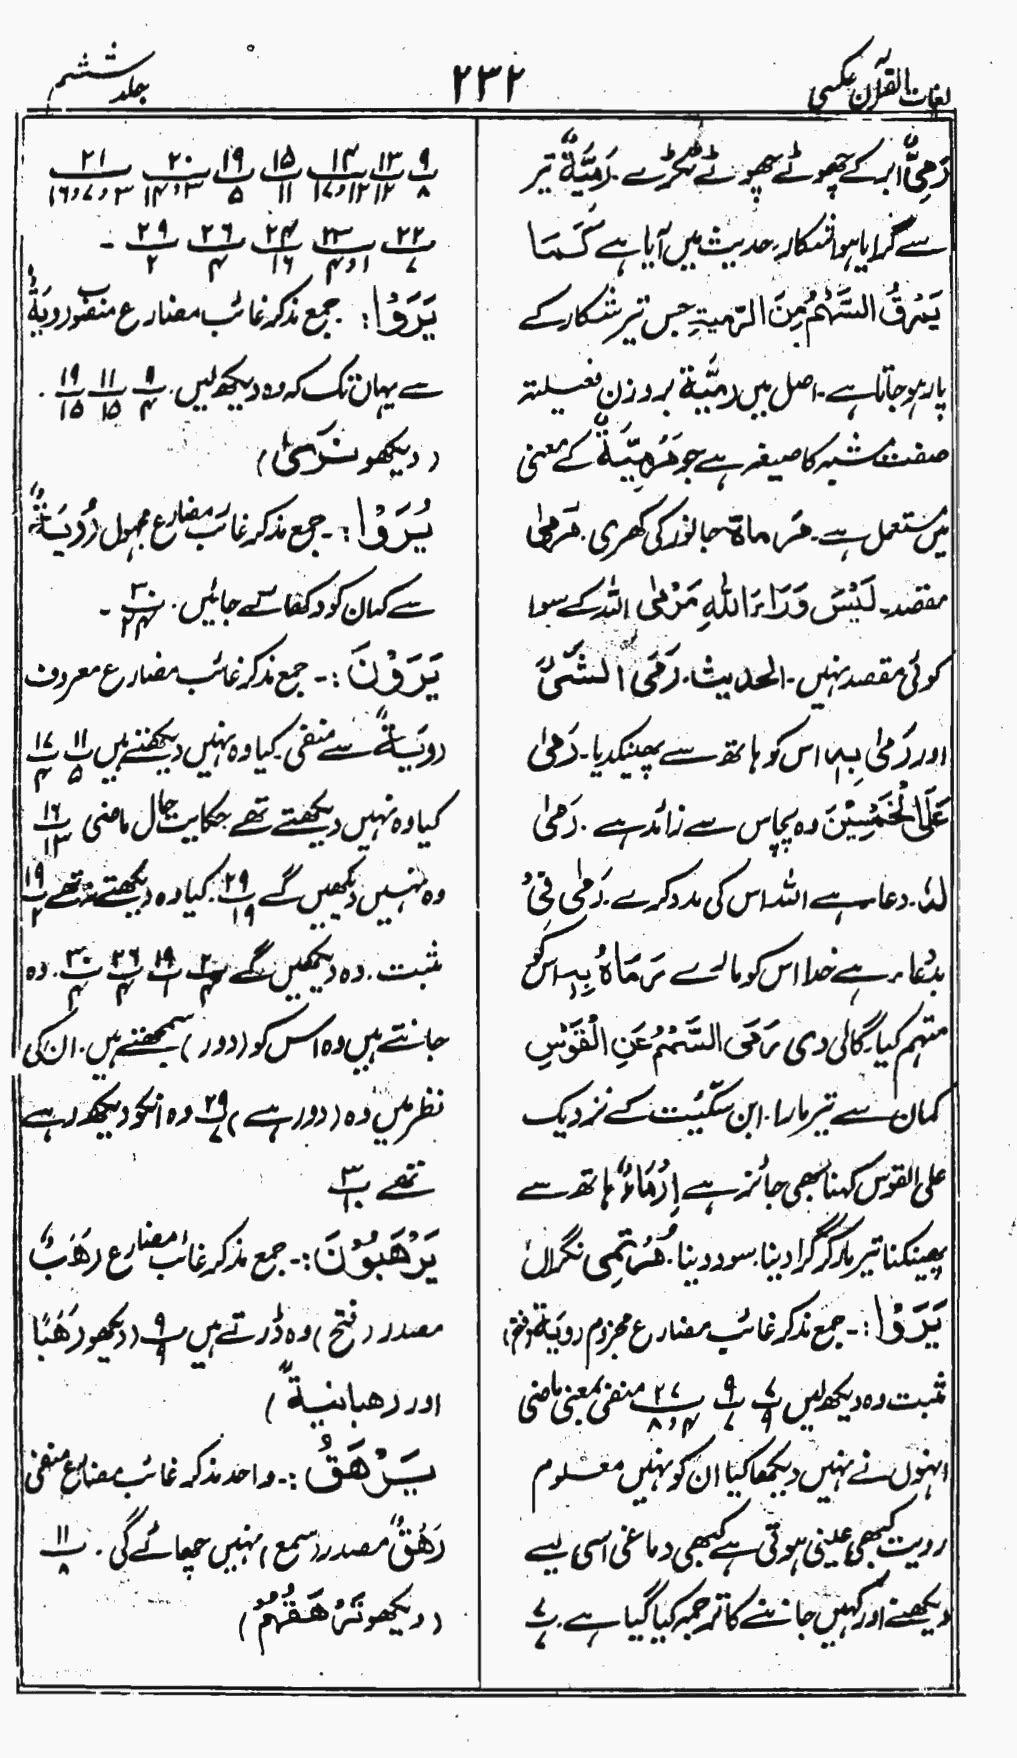 لغات القرآن عکسی
۲۳۲
جلد ششم
رَمِیٌّ ابر کے چھوٹے چھوٹے ٹکڑے۔ رَمِیَّةٌ تیر
سے گرایا ہوا شکار۔ حدیث میں آیا ہے کَمَا
یَمْرُقُ السَّهْمُ مِنَ الرَّمِیةِ جس تیر شکار کے
پار ہو جاتا ہے۔ اصل میں رَمِیَّة بر وزن فعیلته
صفت مشبہ کا صیغہ ہے جو مَرْمِیَّةٌ کے معنی
میں مستعمل ہے۔ مَرماة جانور کی کھری۔ مَرمیٰ
مقصد۔ لَیْسَ وَرَاءَ اللهِ مَرْمیٰ اللہ کے سوا
کوئی مقصد نہیں۔ الحدیث۔ رَمَی الشَّیَٔ
اور رَمیٰ بِهٖ اس کو ہاتھ سے پھینکدیا۔ رَمیٰ
عَلَی الْخَمْسِیْنَ وہ پچاس سے زائد ہے۔ رَمیٰ
لَهٗ۔ دعاء ہے اللہ اس کی مدد کرے۔ رَمیٰ فِیْ
بددُعاء ہے خدا اس کو مارے رَمَاهُ بِهٖ اس کو
متہم کیا۔ گالی دی رَمَی السَّهْمُ عَنِ الْقَوْسِ
کمان سے تیر مارا۔ ابن سکّیت کے نزدیک
علی القوس کہنا بھی جائز ہے اِرْمَاءٌ ہاتھ سے
پھینکنا تیر مار کر گرا دینا۔ سود دینا۔ مُرْتَمِی نگراں
یَرَوْا :۔ جمع مذکر غائب مضارع مجزوم رویة (فتح)
ثبت وہ دیکھ لیں ۷/۹ ۹/۷ ۲۷/۴و۸ منفی بمعنی ماضی
انہوں نے نہیں دیکھا کیا ان کو نہیں معلوم
رویت کبھی عینی ہوتی ہے کبھی دماغی اسی لیے
دیکھنے اور کہیں جاننے کا ترجمہ کیا گیا ہے۔ ۷/۷
۹/۸ ۱۳/۱۲ ۱۴/۱۲و۱۷ ۱۵/۱۱ ۱۹/۵ ۲۰/۳و۱۴ ۲۱/۳و۷و۱۶
۲۲/۷ ۲۳/۱و۴ ۲۴/۱۶ ۲۶/۴ ۲۹/۲ ۔
یَرَوْا : جمع مذکر غائب مضارع منصوب رویَةٌ
سے یہاں تک کہ وہ دیکھ لیں۔ ۹/۴ ۱۱/۱۵ ۱۹/۱۵ .
(دیکھو نَریٰ)
یُرَوْا :۔ جمع مذکر غائب مضارع مجہول رُویَةٌ
سے کہ ان کو دکھائے جائیں۔ ۳۰/۲۴ ۔
یَرَوْنَ :۔ جمع مذکر غائب مضارع معروف
رویَةٌ سے منفی۔ کیا وہ نہیں دیکھتے ہیں ۱۱/۵ ۱۷/۴
کیا وہ نہیں دیکھتے تھے حکایت حال ماضی ۱۶/۱۳
وہ نہیں دیکھیں گے ۲۹/۱۹۔ کیا وہ دیکھتے نہ تھے ۱۹/۲
ثبت۔ وہ دیکھیں گے ۲/۴ ۱۹/۱ ۲۶/۴ ۳۰/۴۔ وہ
جانتے ہیں وہ اس کو (دور) سمجھتے ہیں۔ ان کی
نظر میں وہ (دور ہے) ۲۹/۷ وہ انکو دیکھ رہے
تھے ۳/۱۰
یَرْهَبُوْنَ :۔ جمع مذکر غائب مضارع رَهَبٌ
مصدر (فتح) وہ ڈرتے ہیں ۹/۹ (دیکھو رَهَبًا
اور رهبانیةٌ)
یَرْهَقُ :۔ واحد مذکر غائب مضارع منفی
رَهَقٌ مصدر (سمع) نہیں چھائے گی۔ ۱۱/۸
(دیکھو تَرْهَقُهُمْ)